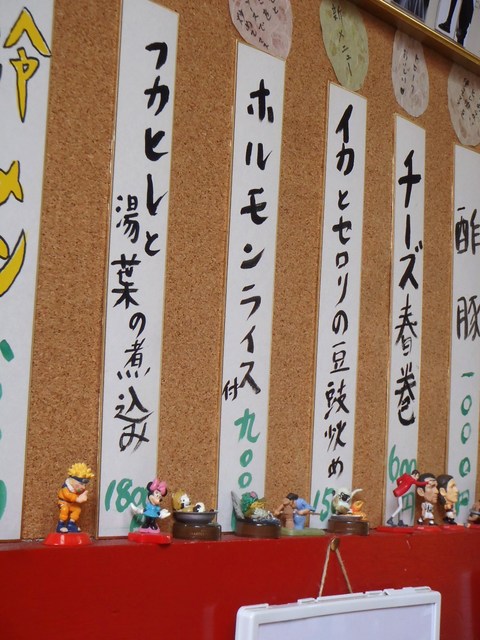 冷メン
フカヒレと
湯葉の煮込み
180
ホルモンライス付
九00
新メニュー
イカとセロリの豆豉炒め
15
チーズ春巻
600円
酢豚
一000